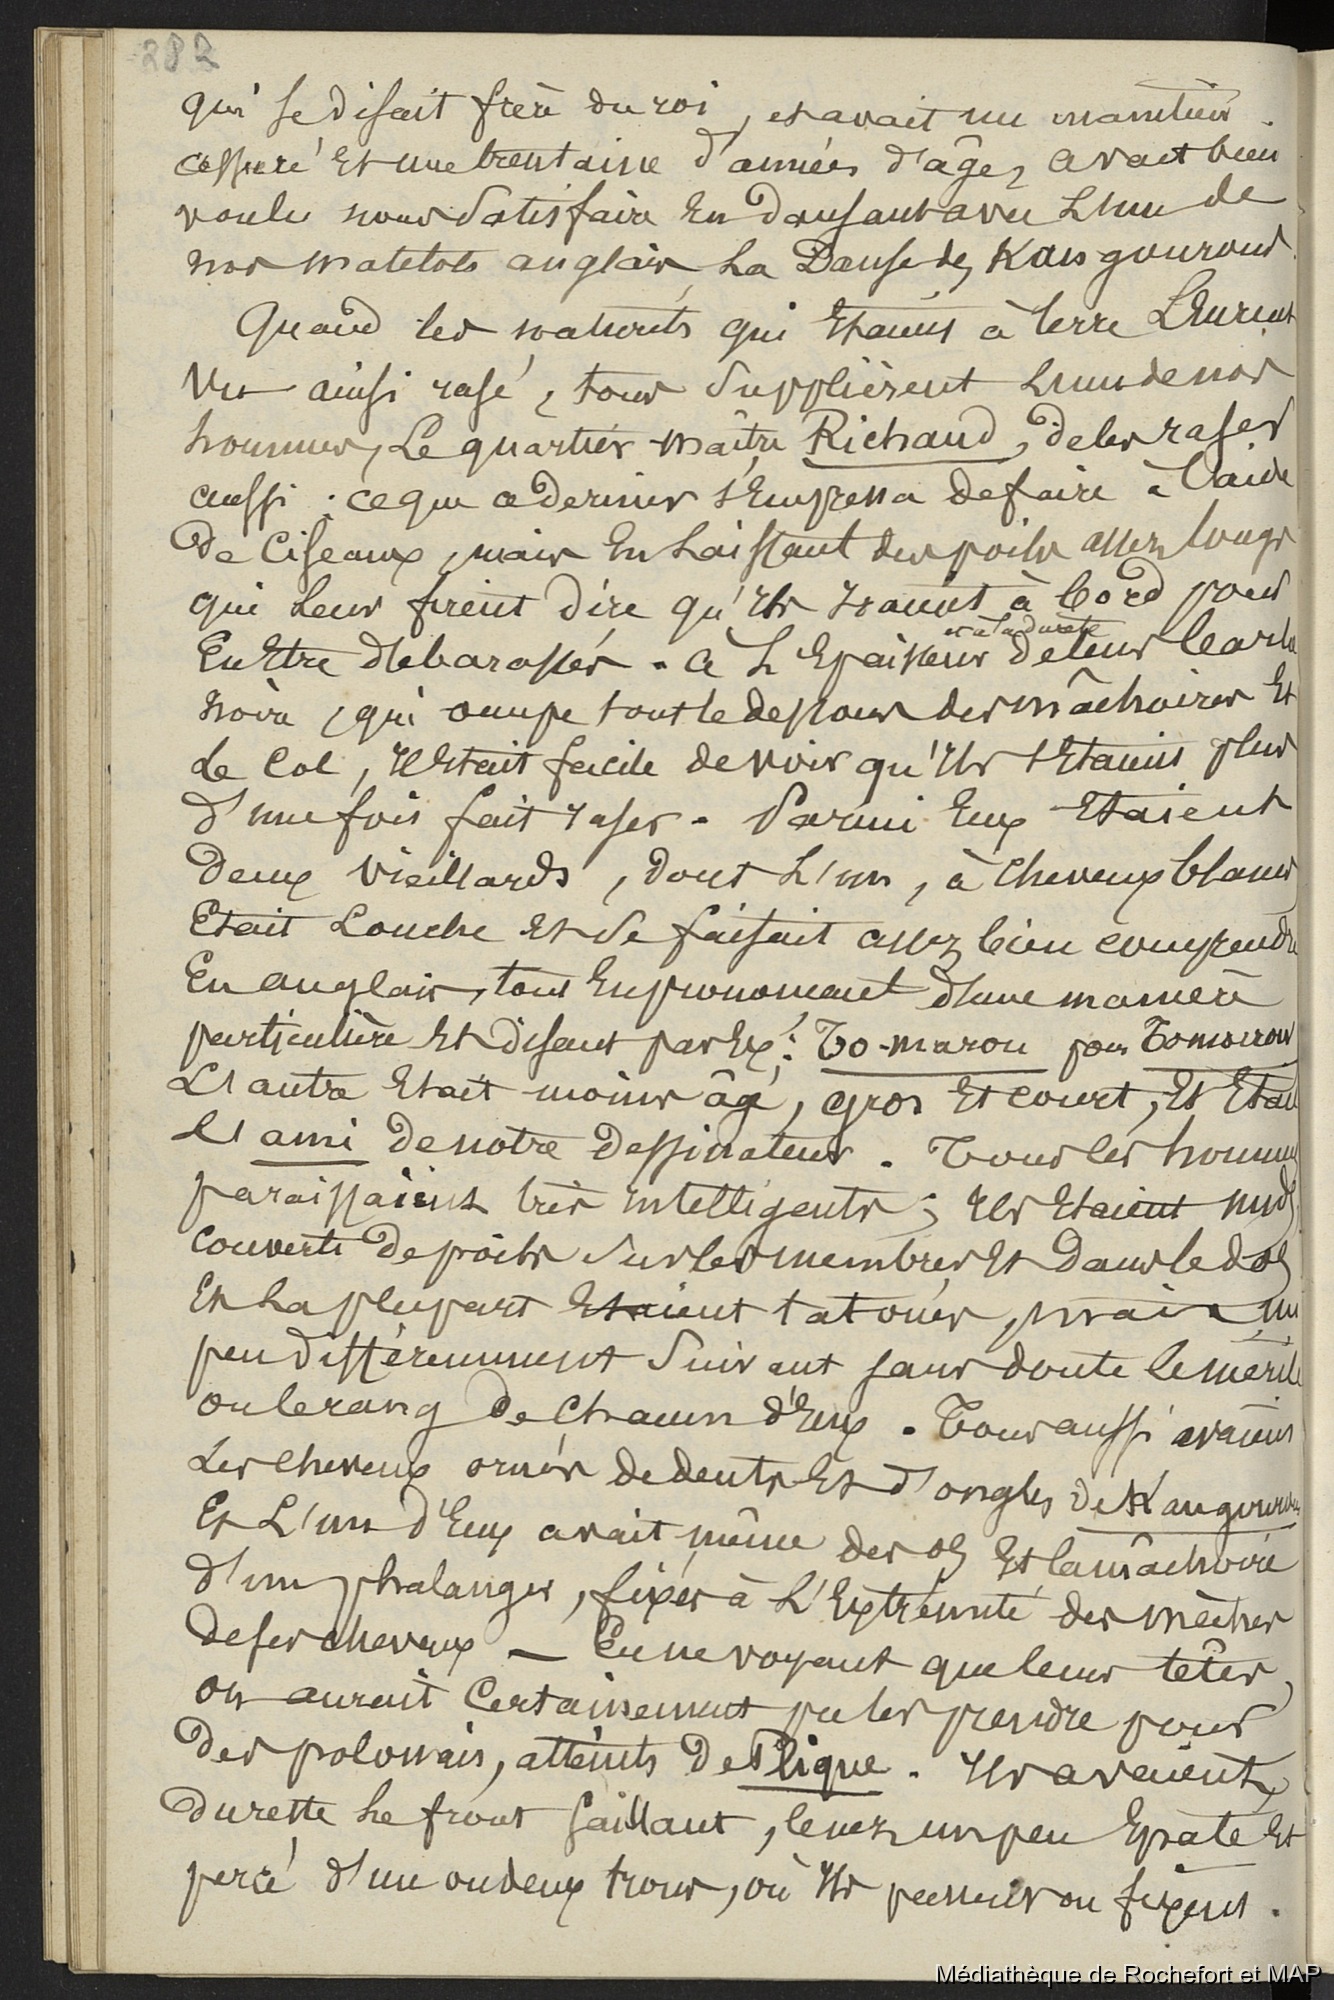 282
qui se disait frère du roi, et avait un maintien
assuré et une trentaine d'années d'âge, avait bien
voulu nous satisfaire en dansant avec l'un de
nos matelots anglais, la Danse des Kansgourous.
Quand les naturels qui étaient à terre l'eurent
vu ainsi rasé, tous supplièrent l'un de nos
hommes, le quartier-maître Richaud, de les raser
aussi : ce que ce dernier s'empressa de faire à l'aide
de ciseaux, mais en laissant des poils assez longs
qui leur firent dire qu'ils iraient à bord pour
et à la dureté
en être débarassés. à l'épaisseur de leur barbe
noire, qui occupe tout le dessous des mâchoires et
le col, il était facile de voir qu'ils s'étaient plus
d'une fois fait raser. Parmi eux étaient
deux vieillards, dont l'un, à cheveux blancs
était louche et se faisait assez bien comprendre
en anglais, tout en prononçant d'une manière
particulière et disant par ex: To-marou pour Tomorrow
L'autre était moins âgé, gros et court, et était
l'ami de notre dessinateur. Tous les hommes
paraissaient très intelligents ; ils étaient nuds
couverts de poils sur les membres et dans le dos
et la plupart étaient tatoués, mais un
peu différemment suivant sans doute le mérite
ou le rang de chacun d'eux. Tous aussi avaient
les cheveux ornés de dents et d'ongles de Kangourous
et l'un d'eux avait même des os et la mâchoire
d'un phalanger, fixés à l'extrémité des mèches
de ses cheveux — En ne voyant que leurs têtes,
on aurait certainement pu les prendre pour
des polonais, atteints de Plique. Ils avaient,
du reste le front saillant, le nez un peu épaté et
percé d'un ou deux trous, où ils passent ou fixent.
Médiathèque de Rochefort et MAP